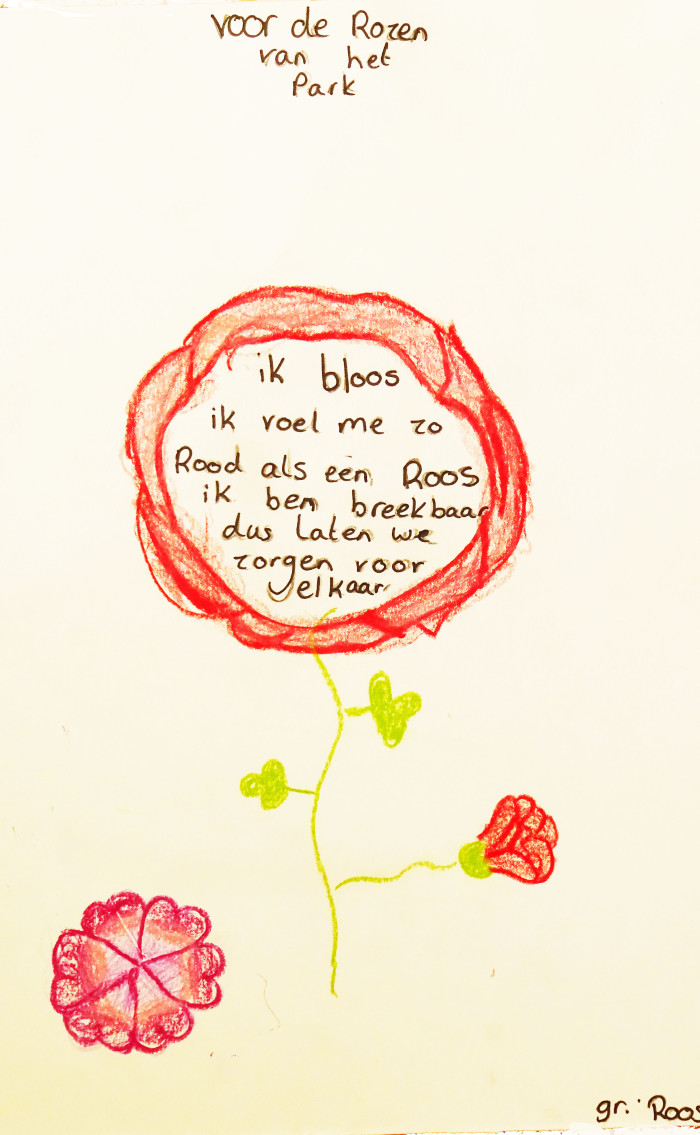 voor de Rozen
van het
Park
ik bloos
ik voel me zo
Rood als een Roos
ik ben breekbaar
dus laten we
zorgen voor
elkaar
gr. Roos